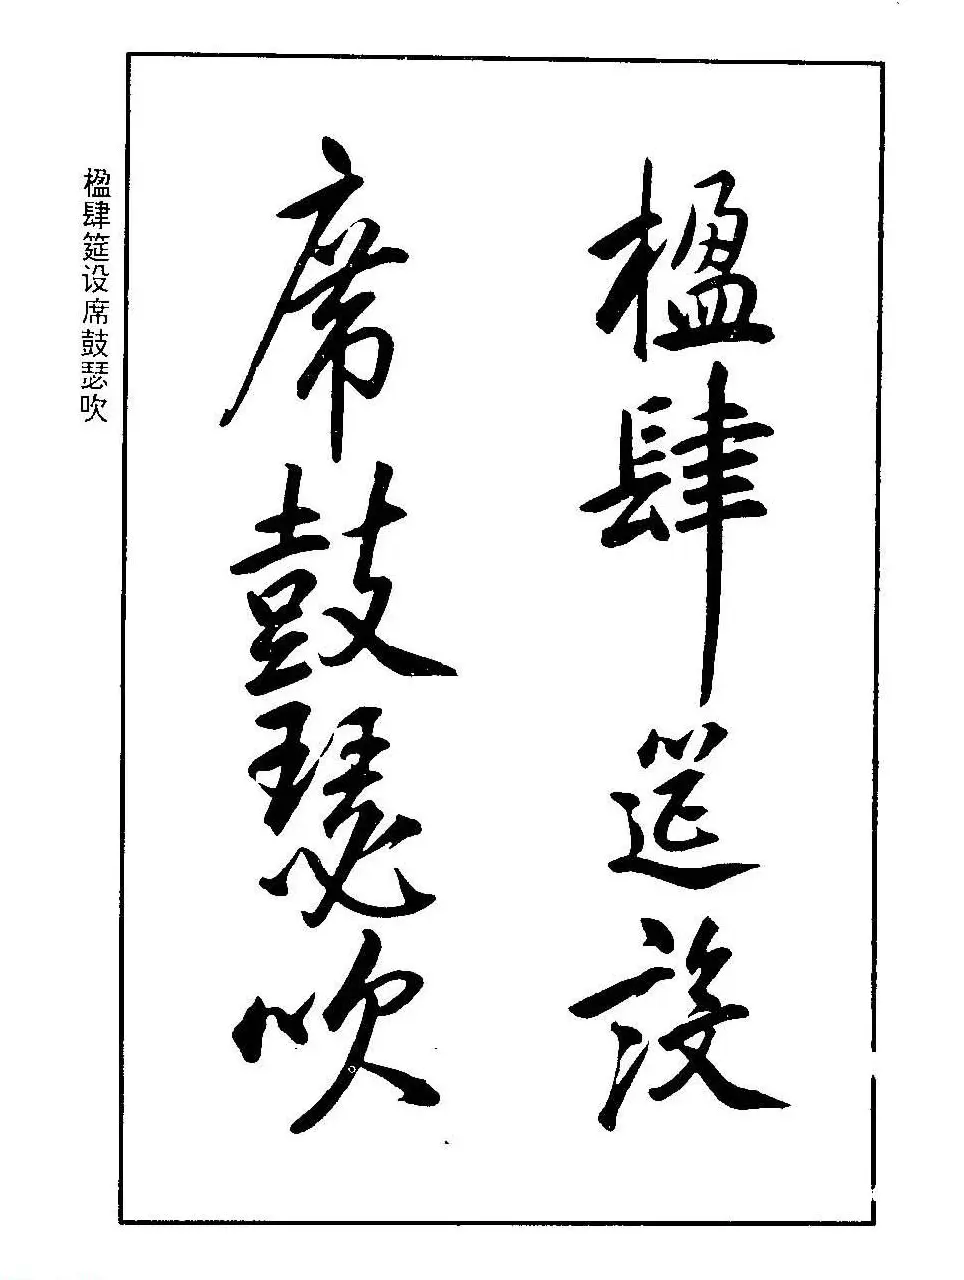 楹肆筵設
席鼓瑟吹
楹肆筵设席鼓瑟吹